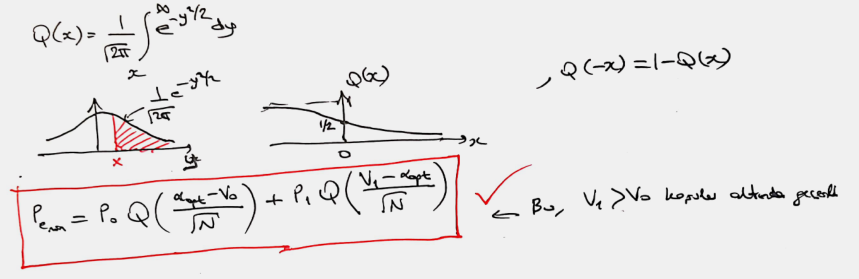 Q(x) = 1/√2π ∫_x^∞ e^(-y²/2) dy
, Q(-x) = 1-Q(x)
1/√2π e^(-y²/2)
x
y
Q(x)
1
1/2
0
x
P_emin = P₀ Q((α_opt - V₀)/√N) + P₁ Q((V₁ - α_opt)/√N) ✓ ← Bu, V₁ > V₀ koşulu altında geçerli